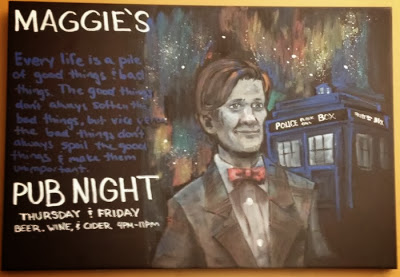 MAGGIE'S
Every life is a pile
of good things & bad
things. The good things
don't always soften the
bad things, but vice versa
the bad things don't
always spoil the good
things & make them
unimportant.
POLICE PUBLIC CALL BOX
PUB NIGHT
THURSDAY & FRIDAY
BEER, WINE, & CIDER. 9PM-11PM